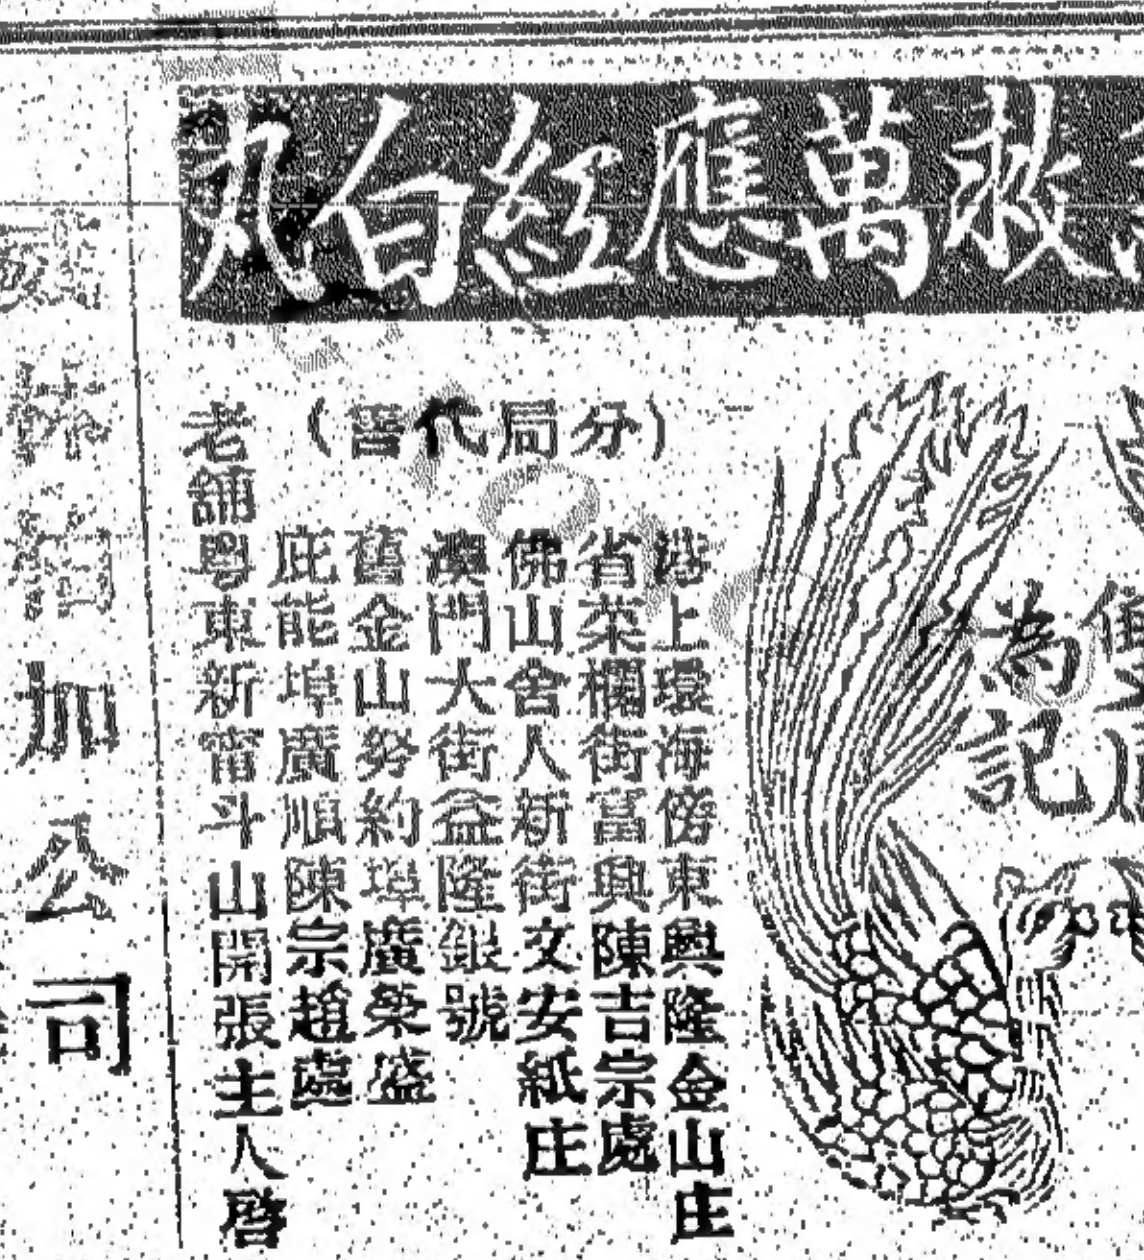 救萬應紅白丸
為記
(分局代啓)
港上環海傍東興隆金山庄
省菜欄街富興陳吉宗處
佛山舍人新街文安紙庄
澳門大街益隆銀號
舊金山努約埠廣榮盛
庇能埠廣順陳宗趙處
老舖粵東新甯斗山開張主人啓
加公司